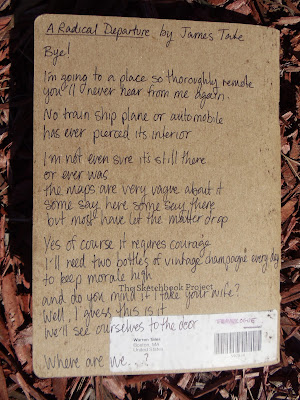 A Radical Departure by James Tate
Bye!
I'm going to a place so thoroughly remote
you'll never hear from me again.
No train ship plane or automobile
has ever pierced its interior
I'm not even sure it's still there
or ever was
the maps are very vague about it
some say here some say there
but most have let the matter drop
Yes of course it requires courage
I'll need two bottles of vintage champagne every day
to keep morale high
The Sketchbook Project
and do you mind if I take your wife?
Well, I guess this is it
we'll see ourselves to the door
Where are we..?
United States